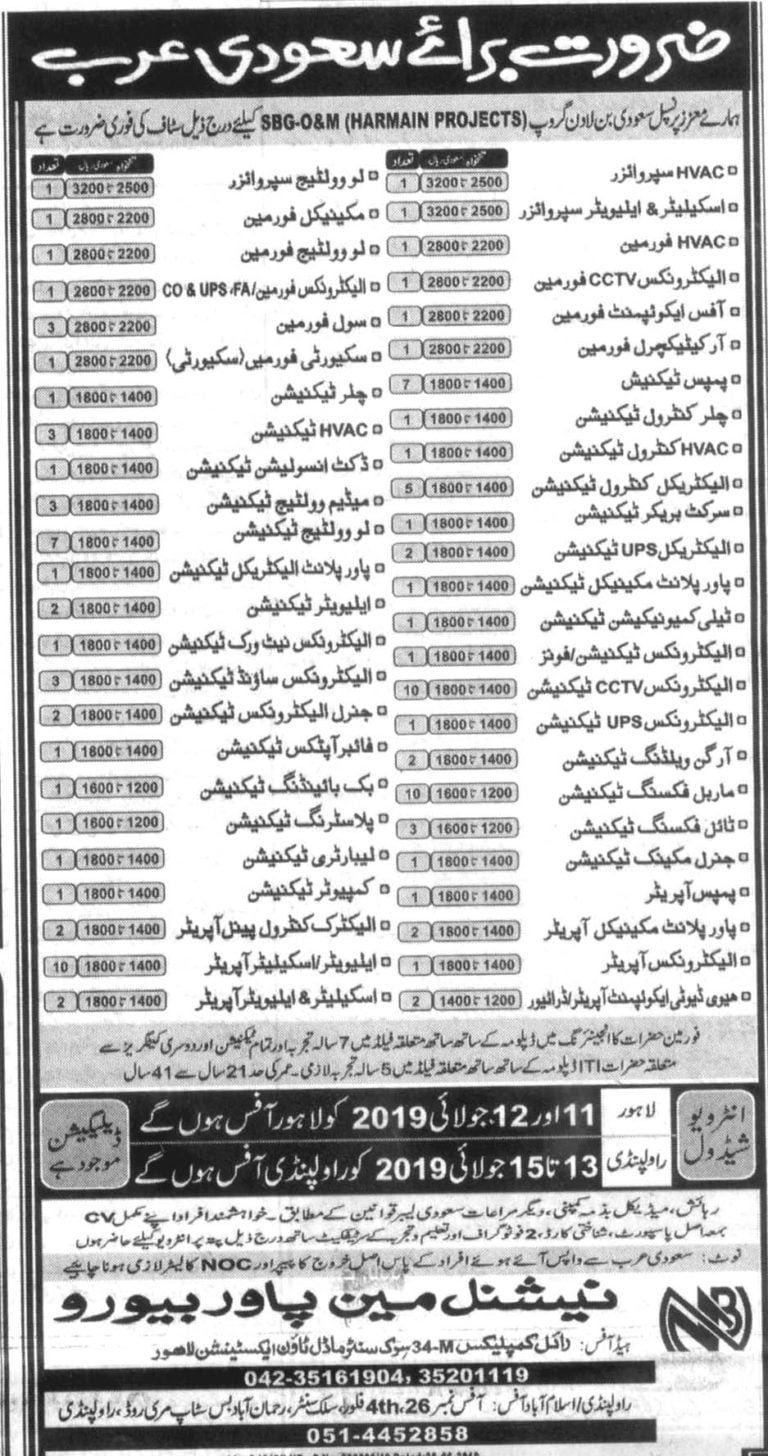 ضرورت برائے سعودی عرب
ہمارے معزز پرنسپل سعودی بن لادن گروپ SBG-O&M (HARMAIN PROJECTS) کیلئے درج ذیل سٹاف کی فوری ضرورت ہے
تنخواہ سعودی ریال تعداد
HVAC سپروائزر 2500 تا 3200 1
اسکیلیٹر & ایلیویٹر سپروائزر 2500 تا 3200 1
HVAC فورمین 2200 تا 2800 1
الیکٹرونکس CCTV فورمین 2200 تا 2800 1
آفس ایکوئپمنٹ فورمین 2200 تا 2800 1
آرکیٹیکچرل فورمین 2200 تا 2800 1
پمپس ٹیکنیشن 1400 تا 1800 7
چلر کنٹرول ٹیکنیشن 1400 تا 1800 1
HVAC کنٹرول ٹیکنیشن 1400 تا 1800 1
الیکٹریکل کنٹرول ٹیکنیشن 1400 تا 1800 5
سرکٹ بریکر ٹیکنیشن 1400 تا 1800 1
الیکٹریکل UPS ٹیکنیشن 1400 تا 1800 2
پاور پلانٹ مکینیکل ٹیکنیشن 1400 تا 1800 1
ٹیلی کمیونیکیشن ٹیکنیشن 1400 تا 1800 1
الیکٹرونکس ٹیکنیشن/فونز 1400 تا 1800 1
الیکٹرونکس CCTV ٹیکنیشن 1400 تا 1800 10
الیکٹرونکس UPS ٹیکنیشن 1400 تا 1800 1
آرگن ویلڈنگ ٹیکنیشن 1400 تا 1800 2
ماربل فکسنگ ٹیکنیشن 1200 تا 1600 10
ٹائل فکسنگ ٹیکنیشن 1200 تا 1600 3
جنرل مکینک ٹیکنیشن 1400 تا 1800 1
پمپس آپریٹر 1400 تا 1800 1
پاور پلانٹ مکینیکل آپریٹر 1400 تا 1800 2
الیکٹرونکس آپریٹر 1400 تا 1800 1
ھیوی ڈیوٹی ایکولپمنٹ آپریٹر/ڈرائیور 1200 تا 1400 2
تنخواہ سعودی ریال تعداد
لو وولٹیج سپروائزر 2500 تا 3200 1
مکینیکل فورمین 2200 تا 2800 1
لو وولٹیج فورمین 2200 تا 2800 1
الیکٹرونکس فورمین/CO & UPS،FA 2200 تا 2800 1
سول فورمین 2200 تا 2800 3
سکیورٹی فورمین (سکیورٹی) 2200 تا 2800 1
چلر ٹیکنیشن 1400 تا 1800 1
HVAC ٹیکنیشن 1400 تا 1800 3
ڈکٹ انسولیشن ٹیکنیشن 1400 تا 1800 1
میڈیم وولٹیج ٹیکنیشن 1400 تا 1800 3
لو وولٹیج ٹیکنیشن 1400 تا 1800 7
پاور پلانٹ الیکٹریکل ٹیکنیشن 1400 تا 1800 1
ایلیویٹر ٹیکنیشن 1400 تا 1800 2
الیکٹرونکس نیٹ ورک ٹیکنیشن 1400 تا 1800 1
الیکٹرونکس ساؤنڈ ٹیکنیشن 1400 تا 1800 3
جنرل الیکٹرونکس ٹیکنیشن 1400 تا 1800 2
فائبر آپٹکس ٹیکنیشن 1400 تا 1800 1
بک بائینڈنگ ٹیکنیشن 1200 تا 1600 1
پلاسٹرنگ ٹیکنیشن 1200 تا 1600 1
لیبارٹری ٹیکنیشن 1400 تا 1800 1
کمپیوٹر ٹیکنیشن 1400 تا 1800 1
الیکٹرک کنٹرول پینل آپریٹر 1400 تا 1800 2
ایلیویٹر/اسکیلیٹر آپریٹر 1400 تا 1800 10
اسکیلیٹر & ایلیویٹر آپریٹر 1400 تا 1800 2
فورمین حضرات کا انجینئرنگ میں ڈپلومہ کے ساتھ ساتھ متعلقہ فیلڈ میں 7 سالہ تجربہ اور تمام ٹیکنیشن اور دوسری کیٹگریز سے
متعلقہ حضرات ITI ڈپلومہ کے ساتھ ساتھ متعلقہ فیلڈ میں 5 سالہ تجربہ لازمی۔ عمر کی حد 21 سال سے 41 سال
انٹرویو شیڈول
لاہور 11 اور 12 جولائی 2019 کو لاہور آفس ہوں گے
راولپنڈی 13 تا 15 جولائی 2019 کو راولپنڈی آفس ہوں گے
ڈیلیگیشن موجود ہے
رہائش، میڈیکل بذمہ کمپنی، دیگر مراعات سعودی لیبر قوانین کے مطابق۔ خواہشمند افراد اپنے مکمل CV
بمعہ اصل پاسپورٹ، شناختی کارڈ، 2 فوٹوگراف اور تعلیم و تجربہ کے سرٹیفکیٹ ساتھ درج ذیل پتہ پر انٹرویو کیلئے حاضر ہوں
نوٹ: سعودی عرب سے واپس آئے ہوئے افراد کے پاس اصل خروج کا پیپر اور NOC کا لیٹر لازمی ہونا چاہیے
نیشنل مین پاور بیورو
NB
ہیڈ آفس: رائل کمپلیکس 34-M سوک سنٹر ماڈل ٹاؤن ایکسٹینشن لاہور
042-35161904, 35201119
راولپنڈی/اسلام آباد آفس: آفس نمبر 26، 4th فلور، سلک سنٹر، رحمان آباد بس سٹاپ مری روڈ، راولپنڈی
051-4452858